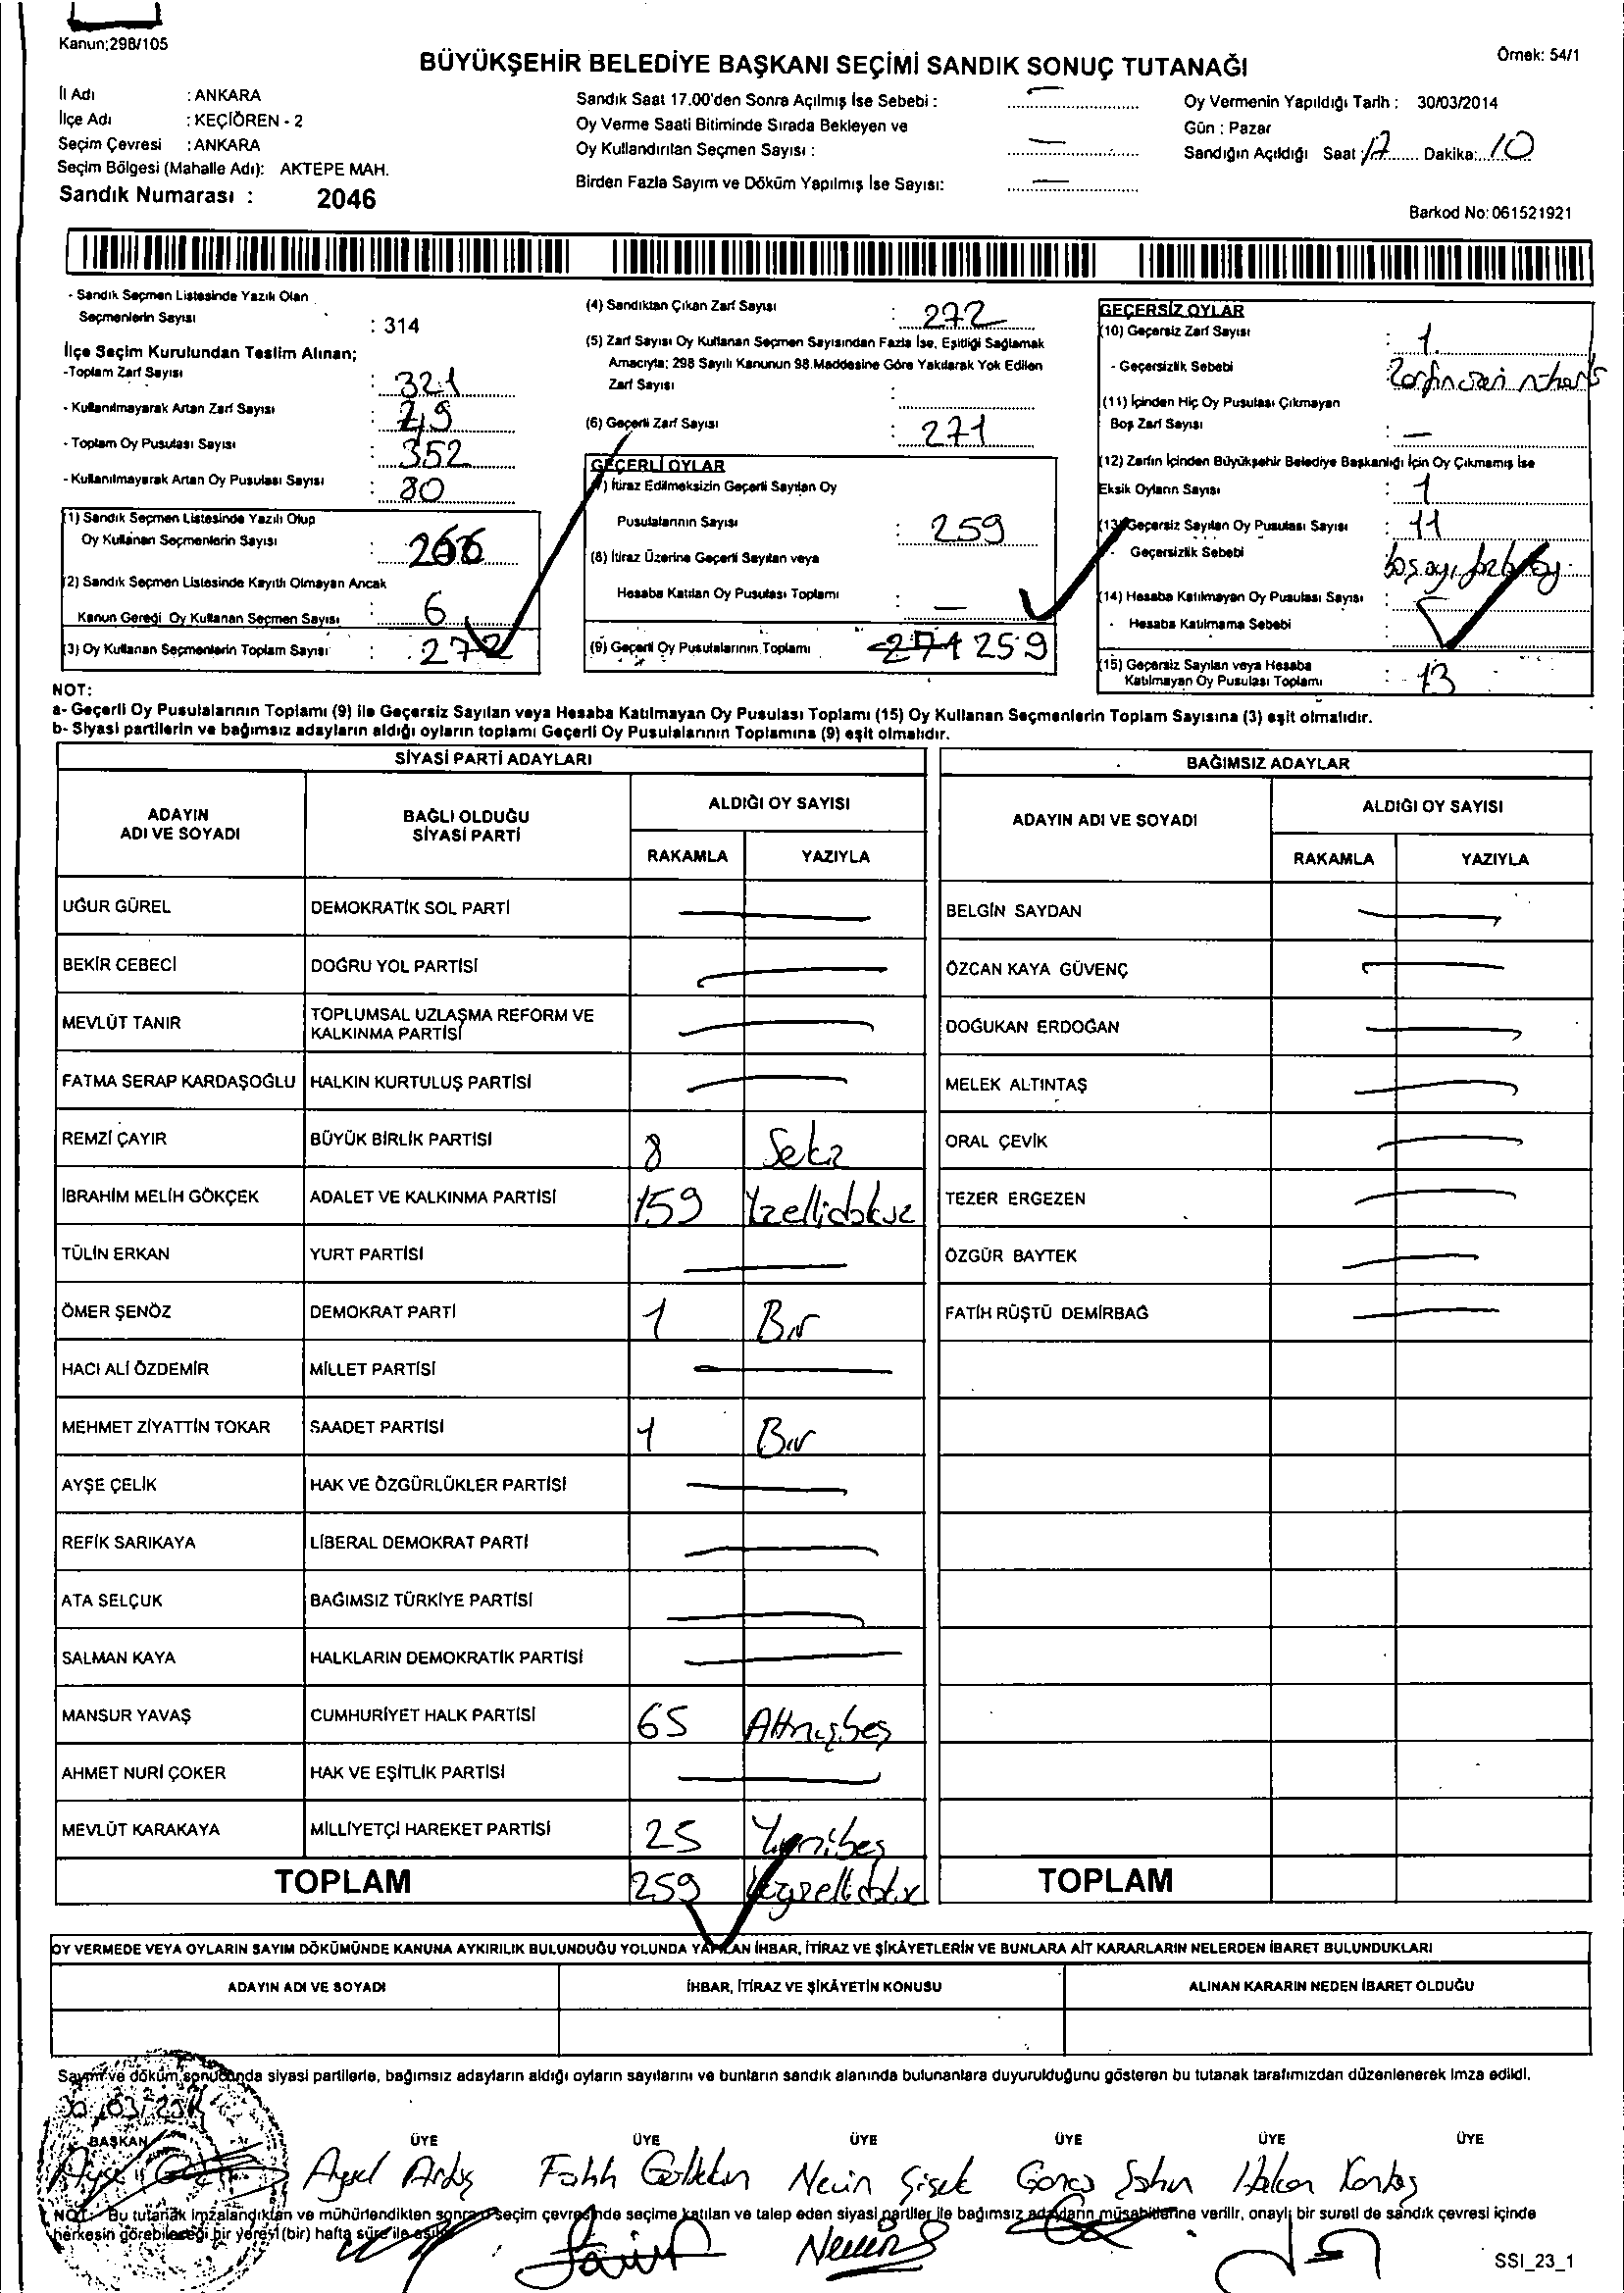 Kanun;298/105
BÜYÜKŞEHİR BELEDİYE BAŞKANI SEÇİMİ SANDIK SONUÇ TUTANAĞI
Örnek: 54/1
İl Adı : ANKARA
İlçe Adı : KEÇİÖREN - 2
Seçim Çevresi : ANKARA
Seçim Bölgesi (Mahalle Adı): AKTEPE MAH.
Sandık Numarası : 2046
Sandık Saat 17.00'den Sonra Açılmış İse Sebebi : —
Oy Verme Saati Bitiminde Sırada Bekleyen ve
Oy Kullandırılan Seçmen Sayısı : —
Birden Fazla Sayım ve Döküm Yapılmış İse Sayısı: —
Oy Vermenin Yapıldığı Tarih : 30/03/2014
Gün : Pazar
Sandığın Açıldığı Saat : 17 Dakika: 10
Barkod No: 061521921
- Sandık Seçmen Listesinde Yazılı Olan
Seçmenlerin Sayısı : 314
İlçe Seçim Kurulundan Teslim Alınan;
-Toplam Zarf Sayısı : 321
- Kullanılmayarak Artan Zarf Sayısı : 49
- Toplam Oy Pusulası Sayısı : 352
- Kullanılmayarak Artan Oy Pusulası Sayısı : 80
(1) Sandık Seçmen Listesinde Yazılı Olup
Oy Kullanan Seçmenlerin Sayısı : 266
(2) Sandık Seçmen Listesinde Kayıtlı Olmayan Ancak
Kanun Gereği Oy Kullanan Seçmen Sayısı : 6
(3) Oy Kullanan Seçmenlerin Toplam Sayısı : 272
(4) Sandıktan Çıkan Zarf Sayısı : 272
(5) Zarf Sayısı Oy Kullanan Seçmen Sayısından Fazla İse, Eşitliği Sağlamak
Amacıyla; 298 Sayılı Kanunun 98.Maddesine Göre Yakılarak Yok Edilen
Zarf Sayısı :
(6) Geçerli Zarf Sayısı : 271
GEÇERLİ OYLAR
(7) İtiraz Edilmeksizin Geçerli Sayılan Oy
Pusulalarının Sayısı : 259
(8) İtiraz Üzerine Geçerli Sayılan veya
Hesaba Katılan Oy Pusulası Toplamı : —
(9) Geçerli Oy Pusulalarının Toplamı 271 259
GEÇERSİZ OYLAR
(10) Geçersiz Zarf Sayısı : 1
- Geçersizlik Sebebi
(11) İçinden Hiç Oy Pusulası Çıkmayan
Boş Zarf Sayısı : —
(12) Zarfın İçinden Büyükşehir Belediye Başkanlığı İçin Oy Çıkmamış İse
Eksik Oyların Sayısı : 1
(13) Geçersiz Sayılan Oy Pusulası Sayısı : 11
- Geçersizlik Sebebi boş oy, fazla oy
(14) Hesaba Katılmayan Oy Pusulası Sayısı :
- Hesaba Katılmama Sebebi :
(15) Geçersiz Sayılan veya Hesaba
Katılmayan Oy Pusulası Toplamı : 13
NOT:
a- Geçerli Oy Pusulalarının Toplamı (9) ile Geçersiz Sayılan veya Hesaba Katılmayan Oy Pusulası Toplamı (15) Oy Kullanan Seçmenlerin Toplam Sayısına (3) eşit olmalıdır.
b- Siyasi partilerin ve bağımsız adayların aldığı oyların toplamı Geçerli Oy Pusulalarının Toplamına (9) eşit olmalıdır.
SİYASİ PARTİ ADAYLARI
ADAYIN ADI VE SOYADI
BAĞLI OLDUĞU SİYASİ PARTİ
ALDIĞI OY SAYISI
RAKAMLA YAZIYLA
UĞUR GÜREL DEMOKRATİK SOL PARTİ —
BEKİR CEBECİ DOĞRU YOL PARTİSİ —
MEVLÜT TANIR TOPLUMSAL UZLAŞMA REFORM VE
KALKINMA PARTİSİ —
FATMA SERAP KARDAŞOĞLU HALKIN KURTULUŞ PARTİSİ —
REMZİ ÇAYIR BÜYÜK BİRLİK PARTİSİ 8 Sekiz
İBRAHİM MELİH GÖKÇEK ADALET VE KALKINMA PARTİSİ 159 Yüzellidokuz
TÜLİN ERKAN YURT PARTİSİ —
ÖMER ŞENÖZ DEMOKRAT PARTİ 1 Bir
HACI ALİ ÖZDEMİR MİLLET PARTİSİ —
MEHMET ZİYATTİN TOKAR SAADET PARTİSİ 1 Bir
AYŞE ÇELİK HAK VE ÖZGÜRLÜKLER PARTİSİ —
REFİK SARIKAYA LİBERAL DEMOKRAT PARTİ —
ATA SELÇUK BAĞIMSIZ TÜRKİYE PARTİSİ —
SALMAN KAYA HALKLARIN DEMOKRATİK PARTİSİ —
MANSUR YAVAŞ CUMHURİYET HALK PARTİSİ 65 Altmışbeş
AHMET NURİ ÇOKER HAK VE EŞİTLİK PARTİSİ —
MEVLÜT KARAKAYA MİLLİYETÇİ HAREKET PARTİSİ 25 Yirmibeş
TOPLAM 259
BAĞIMSIZ ADAYLAR
ADAYIN ADI VE SOYADI
ALDIĞI OY SAYISI
RAKAMLA YAZIYLA
BELGİN SAYDAN —
ÖZCAN KAYA GÜVENÇ —
DOĞUKAN ERDOĞAN —
MELEK ALTINTAŞ —
ORAL ÇEVİK —
TEZER ERGEZEN —
ÖZGÜR BAYTEK —
FATİH RÜŞTÜ DEMİRBAĞ —
TOPLAM
OY VERMEDE VEYA OYLARIN SAYIM DÖKÜMÜNDE KANUNA AYKIRILIK BULUNDUĞU YOLUNDA YAPILAN İHBAR, İTİRAZ VE ŞİKÂYETLERİN VE BUNLARA AİT KARARLARIN NELERDEN İBARET BULUNDUKLARI
ADAYIN ADI VE SOYADI İHBAR, İTİRAZ VE ŞİKÂYETİN KONUSU ALINAN KARARIN NEDEN İBARET OLDUĞU
Sayım ve döküm sonucunda siyasi partilerle, bağımsız adayların aldığı oyların sayılarını ve bunların sandık alanında bulunanlara duyurulduğunu gösteren bu tutanak tarafımızdan düzenlenerek imza edildi.
30/03/2014
BAŞKAN ÜYE ÜYE ÜYE ÜYE ÜYE ÜYE
Ayşe Aysel Fatih Necin Şişek Gonca Şahin Hakan
NOT: Bu tutanak imzalandıktan ve mühürlendikten sonra o seçim çevresinde seçime katılan ve talep eden siyasi partiler ile bağımsız adayların müşahitlerine verilir, onaylı bir sureti de sandık çevresi içinde
herkesin görebileceği bir yere 1 (bir) hafta süre ile asılır.
SSI_23_1